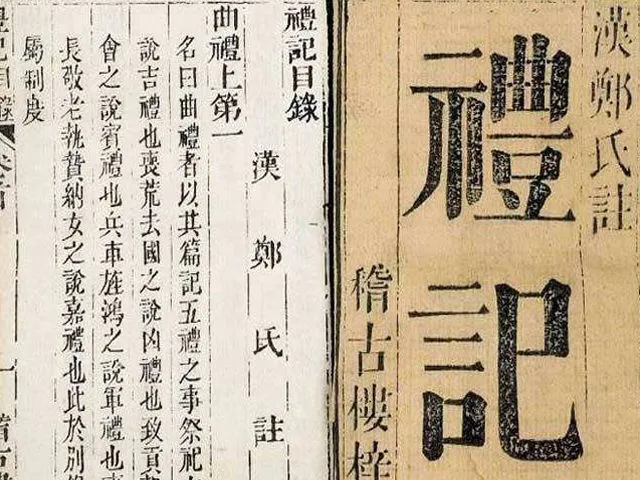 漢鄭氏註
禮記
稽古樓梓
禮記目錄
漢鄭氏註
曲禮上第一
名曰曲禮者以其篇記五禮之事祭祀
說吉禮也喪荒去國之說凶禮也致貢
會之說賓禮也兵車旌鴻之說軍禮也事
長敬老執贄納女之說嘉禮也此於別錄
屬制度
禮記目錄